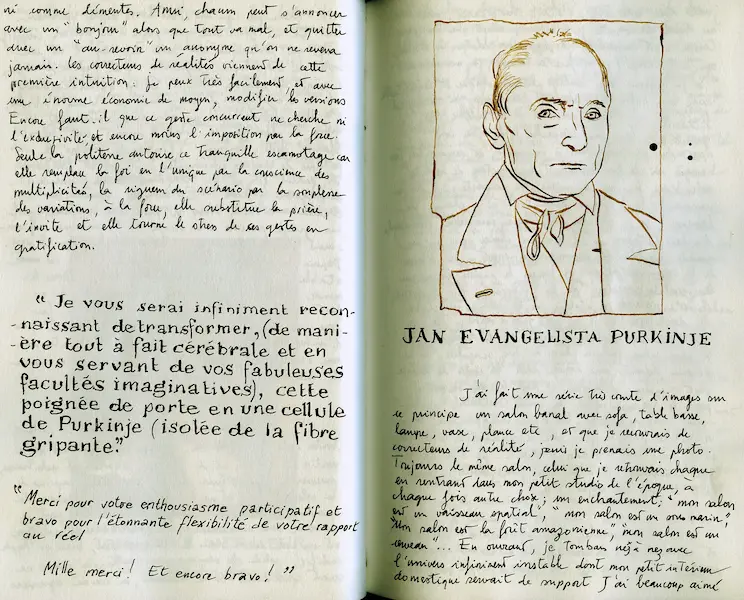 ni comme démentes. Ainsi, chacun peut s'annoncer
avec un "bonjour" alors que tout va mal, et quitter
avec un "au-revoir" un anonyme qu'on ne reverra
jamais. les correcteurs de réalités viennent de cette
première intuition : je peux très facilement et avec
une énorme économie de moyen, modifier les versions
Encore faut-il que ce geste concurrent ne cherche ni
l'exclusivité et encore moins l'imposition par la force.
Seule la politesse autorise ce tranquille escamotage car
elle remplace la foi en l'unique par la conscience des
multiplicités, la rigueur du scénario par la souplesse
des variations, à la force, elle substitue la prière,
l'invite et elle tourne le stress de ses gestes en
gratification.
" Je vous serai infiniment recon-
-naissant detransformer, (de mani-
-ère tout à fait cérébrale et en
vous servant de vos fabuleuses
facultés imaginatives), cette
poignée de porte en une cellule
de Purkinje (isolée de la fibre
gripante."
"Merci pour votre enthousiasme participatif et
bravo pour l'étonnante flexibilité de votre rapport
au réel
Mille merci ! Et encore bravo ! "
JAN EVANGELISTA PURKINJE
J'ai fait une série très courte d'images sur
ce principe un salon banal avec sofa, table basse,
lampe, vase, plante etc , et que je recouvrais de
correcteurs de réalité, puis je prenais une photo.
Toujours le même salon, celui que je retrouvais chaque
en rentrant dans mon petit studio de l'époque, à
chaque fois autre chose ; un enchantement : "mon salon
est un vaisseau spatial", "mon salon est un sous marin"
"Mon salon est la forêt amazonienne", "mon salon est un
cerveau"... En ouvrant, je tombais nez à nez avec
l'univers infiniment instable dont mon petit intérieur
domestique servait de support J'ai beaucoup aimé